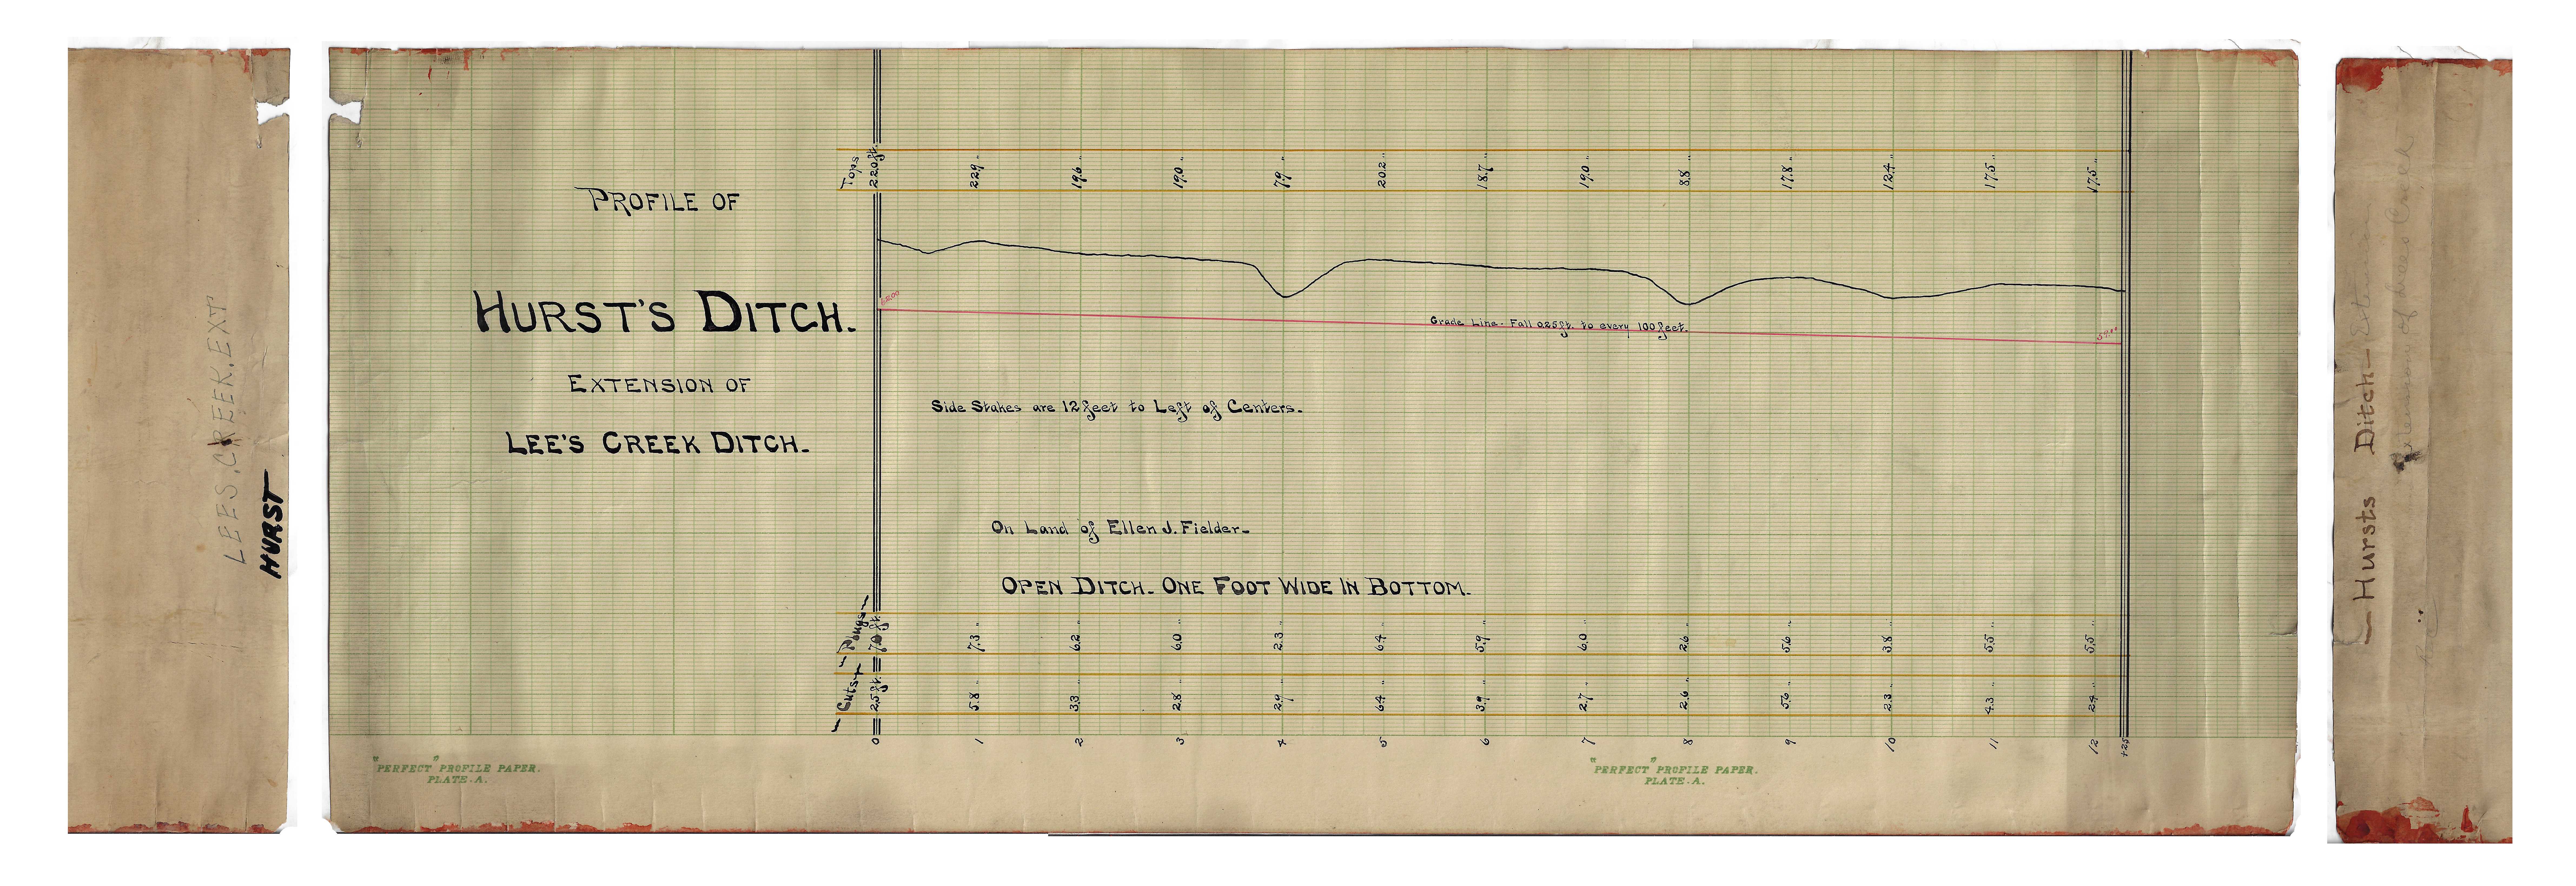 LEES.CREEK.EXT
HURST
PROFILE OF
HURST'S DITCH.
EXTENSION OF
LEE'S CREEK DITCH.
Tops
22.0 ft. 22.9 " 19.6 " 19.0 " 7.9 " 20.2 " 18.7 " 19.0 " 8.8 " 17.8 " 12.4 " 17.5 " 17.5 "
Grade Line - Fall 0.25 ft. to every 100 feet.
Side Stakes are 12 feet to Left of Centers.
On Land of Ellen J. Fielder -
OPEN DITCH - ONE FOOT WIDE IN BOTTOM.
Plugs
7.0 ft. 7.3 " 6.2 " 6.0 " 2.3 " 6.4 " 5.9 " 6.0 " 2.6 " 5.6 " 3.8 " 5.5 " 5.5 "
Cuts
2.5 ft. 5.8 " 3.3 " 2.8 " 2.9 " 6.4 " 3.9 " 2.7 " 2.6 " 5.6 " 2.3 " 4.3 " 2.4 "
0 1 2 3 4 5 6 7 8 9 10 11 12 +25
"PERFECT" PROFILE PAPER.
PLATE A.
"PERFECT" PROFILE PAPER.
PLATE A.
Hursts Ditch - Extension
Extension of Lees Creek